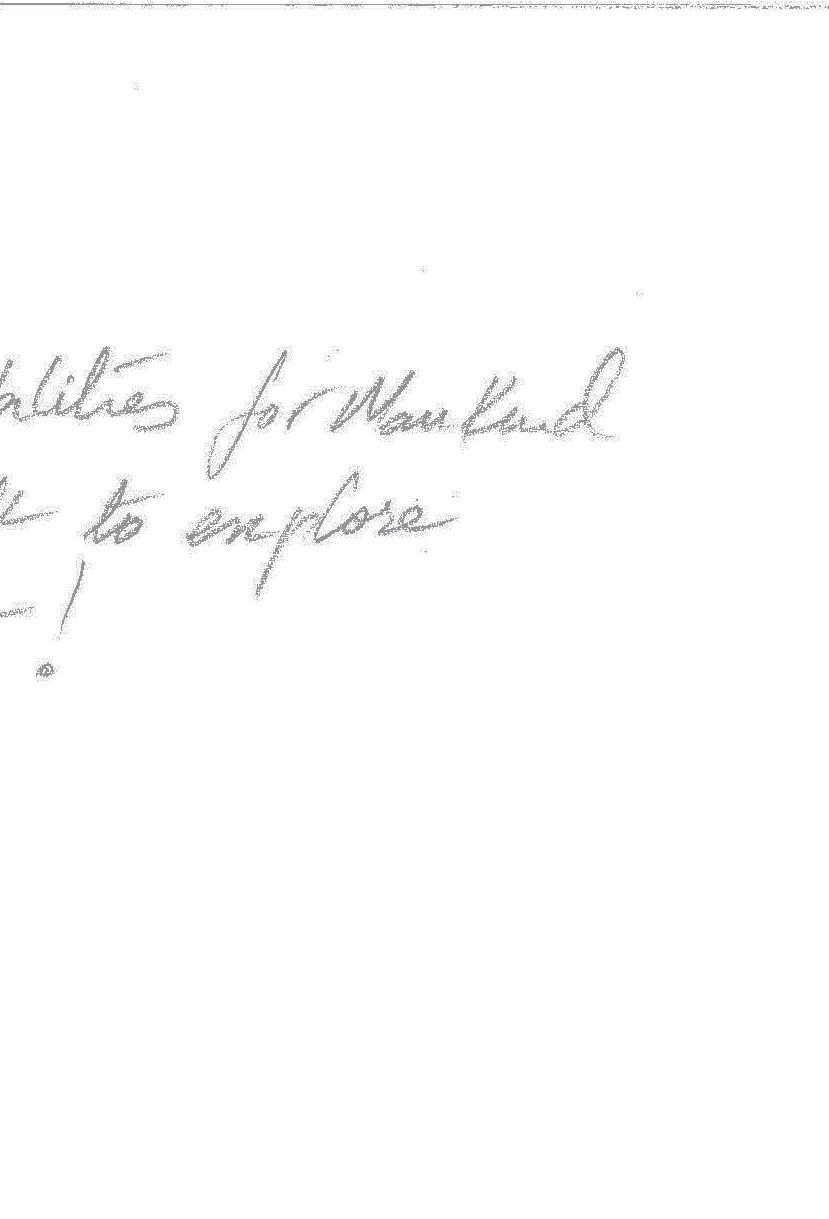 alities for Mankind
to explore
!